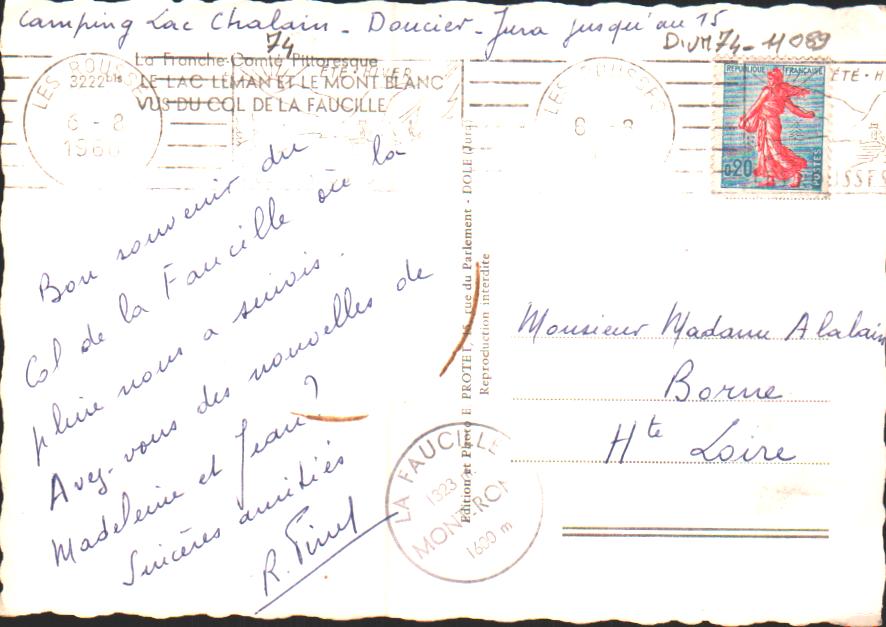 Camping Lac Chalain - Doucier - Jura jusqu'au 15
74
DIVM74-11089
La Franche-Comté Pittoresque
3222 bis
LE LAC LÉMAN ET LE MONT BLANC
VUS DU COL DE LA FAUCILLE
LES ROUSSES
6 - 8
196
ÉTÉ - HIVER
LES ROUSSES
6 - 8
RÉPUBLIQUE FRANÇAISE
0,20
POSTES
ÉTÉ - H
USSES
Bon souvenir du
Col de la Faucille où la
pluie nous a suivis.
Avez-vous des nouvelles de
Madeleine et Jean?
Sincères amitiés
Edition et Photo E PROTET, rue du Parlement - DOLE (Jura)
Reproduction interdite
Monsieur Madame Alalain
Borne
Hte Loire
LA FAUCILLE
1323 m
MONTROND
1600 m